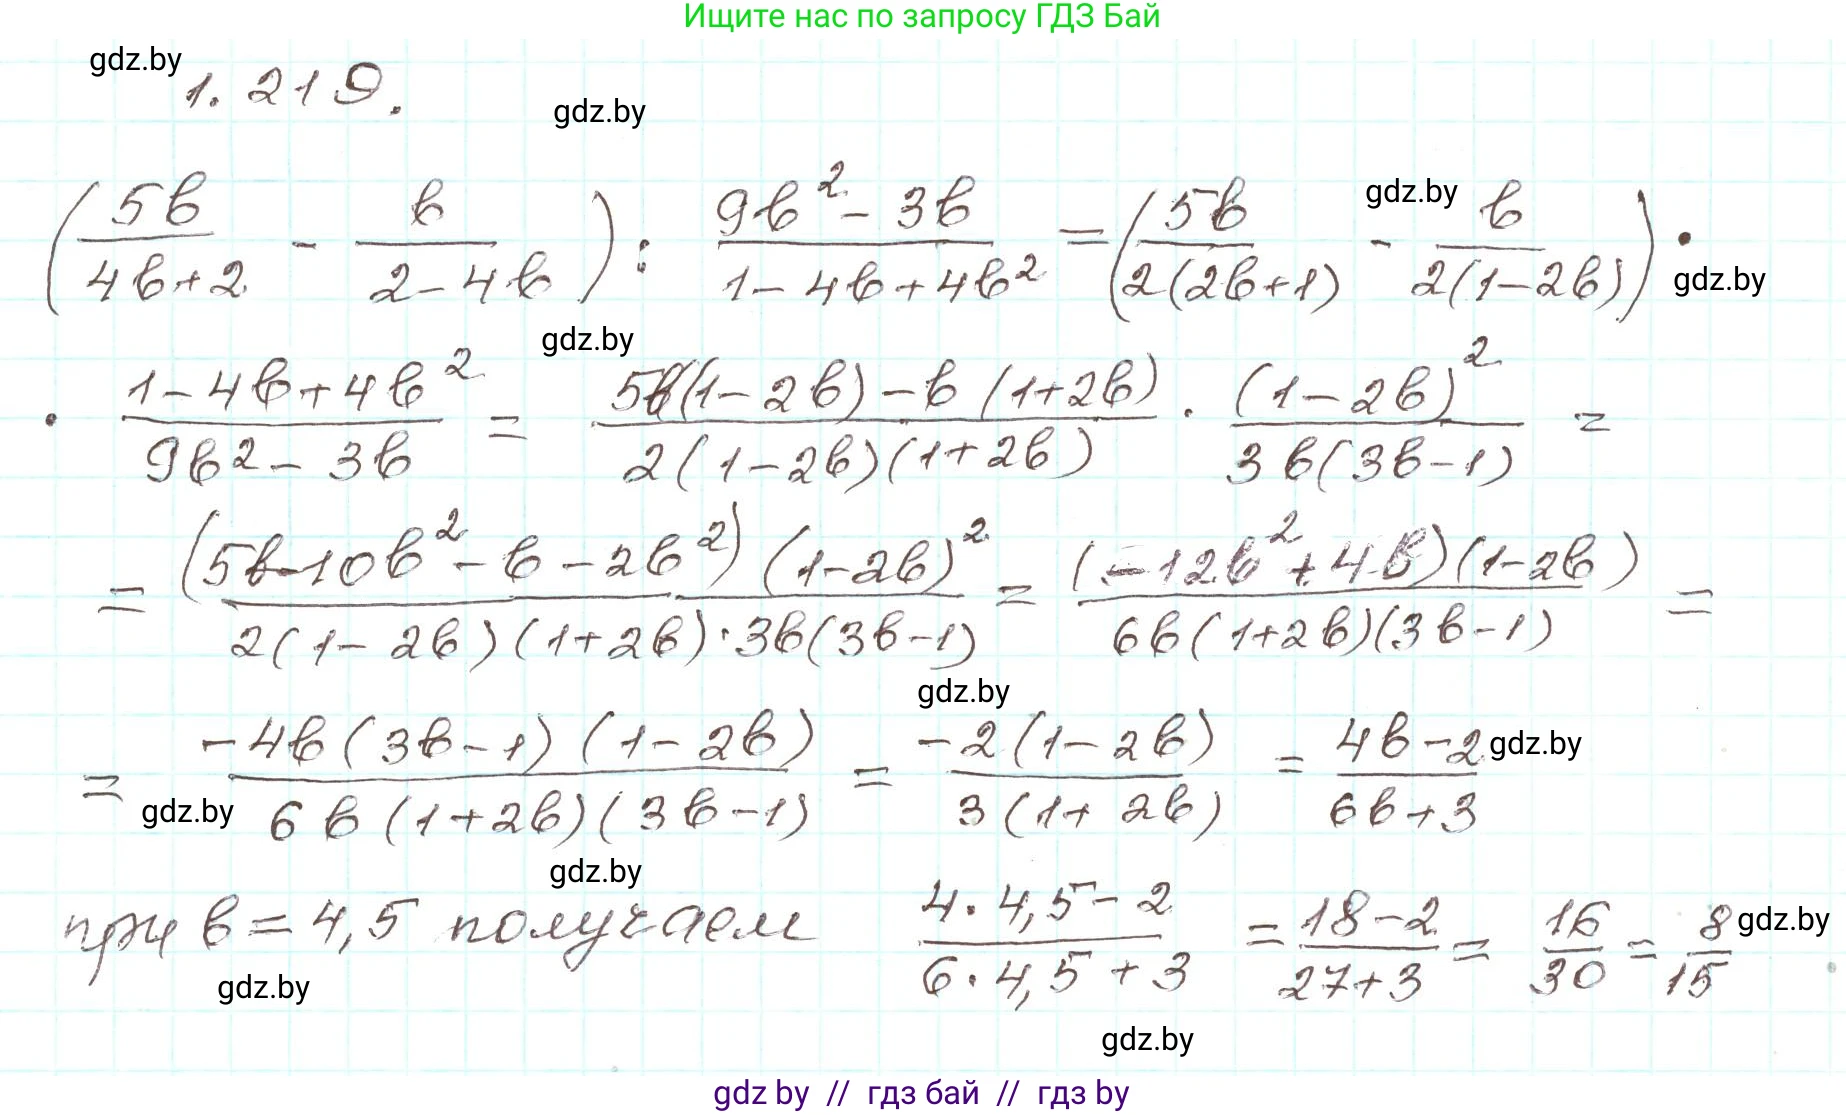 Ищите нас по запросу ГДЗ Бай
gdz.by
1.219.
gdz.by
(5b/(4b+2) - b/(2-4b)) : (9b²-3b)/(1-4b+4b²) = (5b/(2(2b+1)) - b/(2(1-2b))) ·
gdz.by
gdz.by
gdz.by
· (1-4b+4b²)/(9b²-3b) = (5b(1-2b)-b(1+2b))/(2(1-2b)(1+2b)) · (1-2b)²/(3b(3b-1)) =
= ((5b-10b²-b-2b²)(1-2b)²)/(2(1-2b)(1+2b)·3b(3b-1)) = ((-12b²+4b)(1-2b))/(6b(1+2b)(3b-1)) =
gdz.by
= (-4b(3b-1)(1-2b))/(6b(1+2b)(3b-1)) = (-2(1-2b))/(3(1+2b)) = (4b-2)/(6b+3)
gdz.by
gdz.by
gdz.by
при b=4,5 получаем (4·4,5-2)/(6·4,5+3) = (18-2)/(27+3) = 16/30 = 8/15
gdz.by
gdz.by
gdz.by
gdz by // гдз бай // gdz by